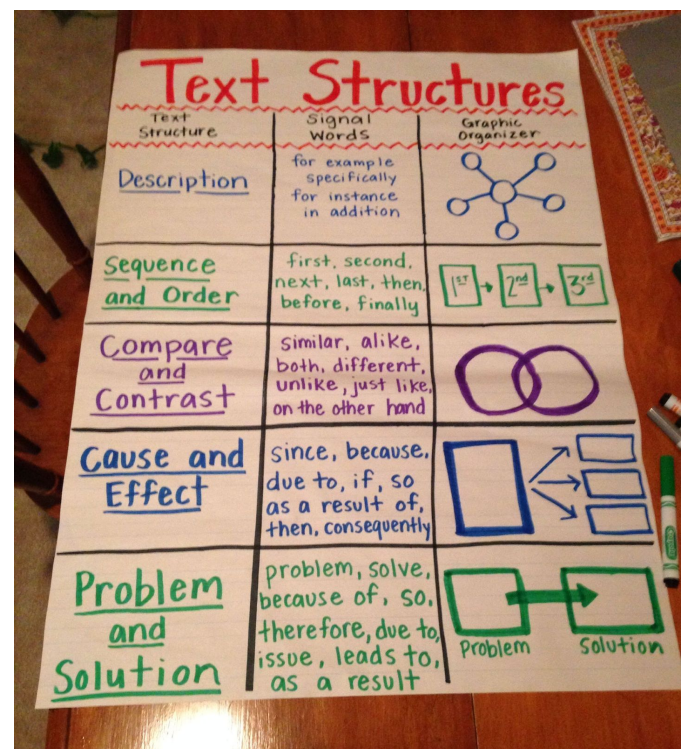 Text Structures
Text
Structure
Signal
Words
Graphic
Organizer
Description
for example
specifically
for instance
in addition
Sequence
and Order
first, second,
next, last, then,
before, finally
1ST
2nd
3rd
Compare
and
Contrast
similar, alike,
both, different,
unlike, just like,
on the other hand
Cause and
Effect
since, because,
due to, if, so
as a result of,
then, consequently
Problem
and
Solution
problem, solve,
because of, so,
therefore, due to,
issue, leads to,
as a result
Problem
Solution